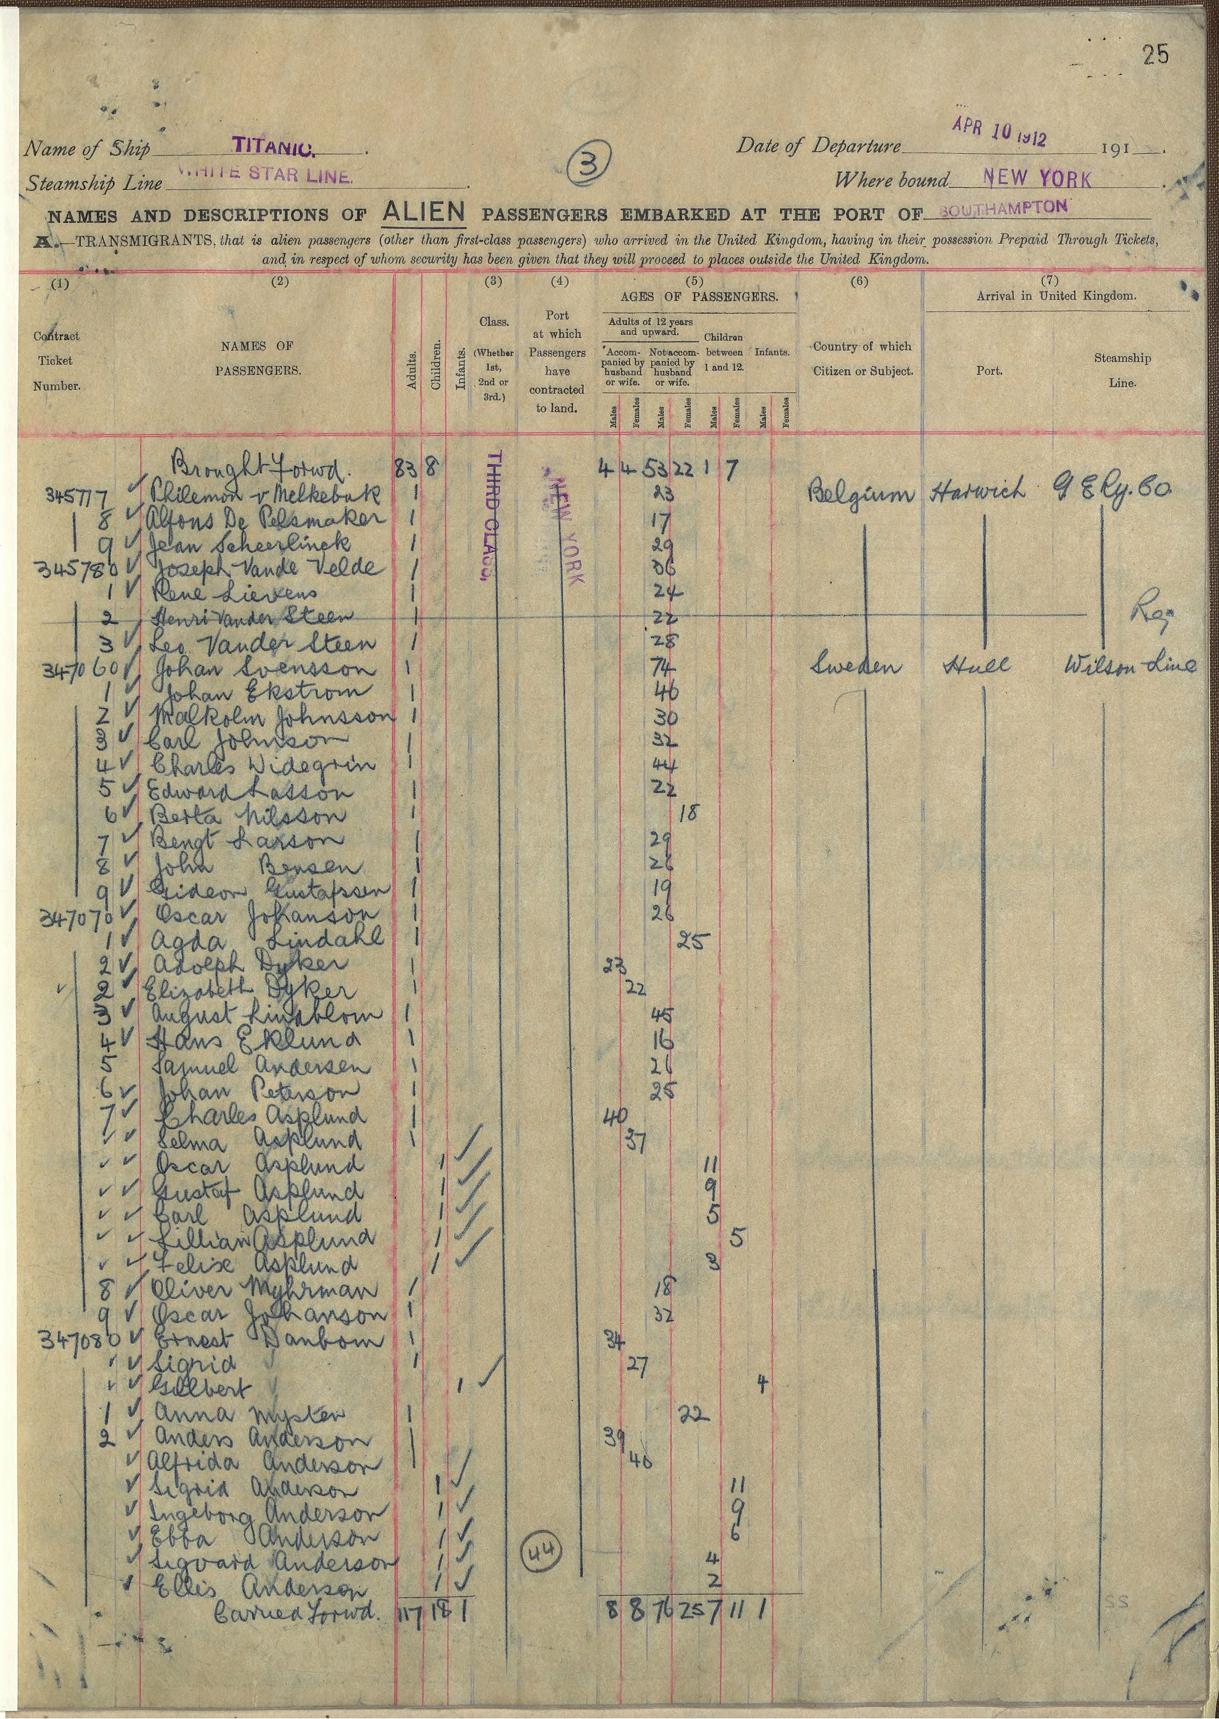 25
APR 10 1912
Name of Ship TITANIC. Date of Departure 191 .
Steamship Line WHITE STAR LINE. 3 Where bound NEW YORK
NAMES AND DESCRIPTIONS OF ALIEN PASSENGERS EMBARKED AT THE PORT OF SOUTHAMPTON
A.—TRANSMIGRANTS, that is alien passengers (other than first-class passengers) who arrived in the United Kingdom, having in their possession Prepaid Through Tickets,
and in respect of whom security has been given that they will proceed to places outside the United Kingdom.
(1) (2) (3) (4) (5) (6) (7)
Contract Ticket Number.
NAMES OF PASSENGERS.
Adults.
Children.
Infants.
Class. (Whether 1st, 2nd or 3rd.)
Port at which Passengers have contracted to land.
AGES OF PASSENGERS.
Adults of 12 years and upward.
Accompanied by husband or wife.
Not accompanied by husband or wife.
Children between 1 and 12.
Infants.
Males Females Males Females Males Females Males Females
Country of which Citizen or Subject.
Arrival in United Kingdom.
Port.
Steamship Line.
THIRD CLASS,
NEW YORK
Brought Forwd. 83 8 4 4 53 22 1 7
345777 Philemon v Melkebuk 1 23 Belgium Harwich G E Ry. Co
8 Alfons De Pelsmaker 1 17
9 Jean Scheerlinck 1 29
345780 Joseph Vande Velde 1 36
1 Rene Lievens 1 24
2 Henri Vander Steen 1 22
3 Leo Vander Steen 1 28
347060 Johan Svensson 1 74 Sweden Hull Wilson Line
1 Johan Ekstrom 1 46
2 Malkolm Johnsson 1 30
3 Carl Johnson 1 32
4 Charles Widegrin 1 44
5 Edward Lasson 1 22
6 Berta Nilsson 1 18
7 Bengt Larson 1 29
8 John Bensen 1 26
9 Gideon Gustafssen 1 19
347070 Oscar Johanson 1 26
1 Agda Lindahl 1 25
2 Adolph Dyker 1 23
2 Elizabeth Dyker 1 22
3 August Lindblom 1 45
4 Hans Eklund 1 16
5 Samuel Andersen 1 26
6 Johan Peterson 1 25
7 Charles Asplund 1 40
Selma Asplund 1 37
Oscar Asplund 1 11
Gustaf Asplund 1 9
Carl Asplund 1 5
Lillian Asplund 1 5
Felix Asplund 1 3
8 Oliver Myhrman 1 18
9 Oscar Johanson 1 32
347080 Ernest Danbom 1 34
Sigrid 1 27
Gilbert 1 4
1 Anna Mysten 1 22
2 Anders Anderson 1 39
Alfrida Anderson 1 40
Sigrid Anderson 1 11
Ingeborg Anderson 1 9
Ebba Anderson 1 6
Sigvard Anderson 1 4
Ellis Anderson 1 2
44
Carried Forwd. 117 18 1 8 8 76 25 7 11 1